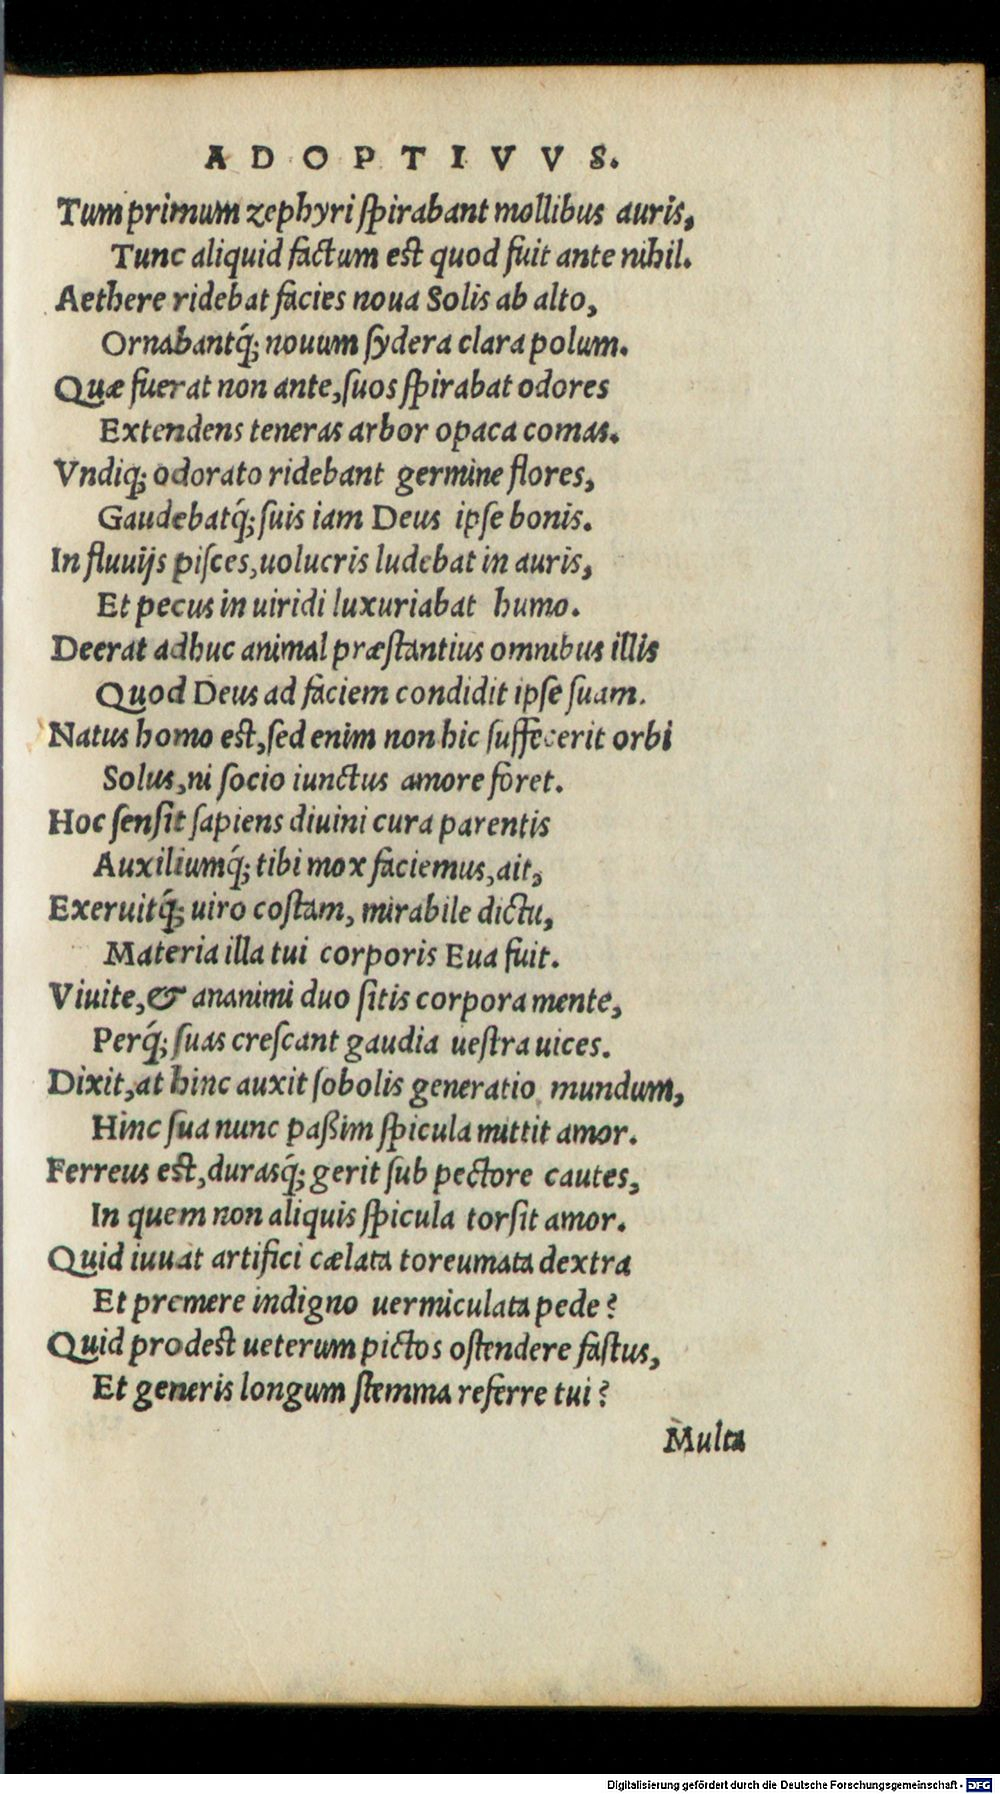 ADOPTIVVS.
Tum primum zephyri ſpirabant mollibus auris,
Tunc aliquid factum est quod fuit ante nihil.
Aethere ridebat facies noua Solis ab alto,
Ornabantq́; nouum ſydera clara polum.
Quæ fuerat non ante, ſuos ſpirabat odores
Extendens teneras arbor opaca comas.
Vndiq; odorato ridebant germine flores,
Gaudebatq́; ſuis iam Deus ipſe bonis.
In fluuijs piſces, uolucris ludebat in auris,
Et pecus in uiridi luxuriabat humo.
Deerat adhuc animal præſtantius omnibus illis
Quod Deus ad faciem condidit ipſe ſuam.
Natus homo est, ſed enim non hic ſuffecerit orbi
Solus, ni ſocio iunctus amore foret.
Hoc ſenſit ſapiens diuini cura parentis
Auxiliumq́; tibi mox faciemus, ait,
Exeruitq́; uiro coſtam, mirabile dictu,
Materia illa tui corporis Eua fuit.
Viuite, & ananimi duo ſitis corpora mente,
Perq́; ſuas creſcant gaudia ueſtra uices.
Dixit, at hinc auxit ſobolis generatio mundum,
Hinc ſua nunc paßim ſpicula mittit amor.
Ferreus est, durasq́; gerit ſub pectore cautes,
In quem non aliquis ſpicula torſit amor.
Quid iuuat artifici cælata toreumata dextra
Et premere indigno uermiculata pede?
Quid prodest ueterum pictos oſtendere faſtus,
Et generis longum ſtemma referre tui?
Multa
Digitalisierung gefördert durch die Deutsche Forschungsgemeinschaft - DFG